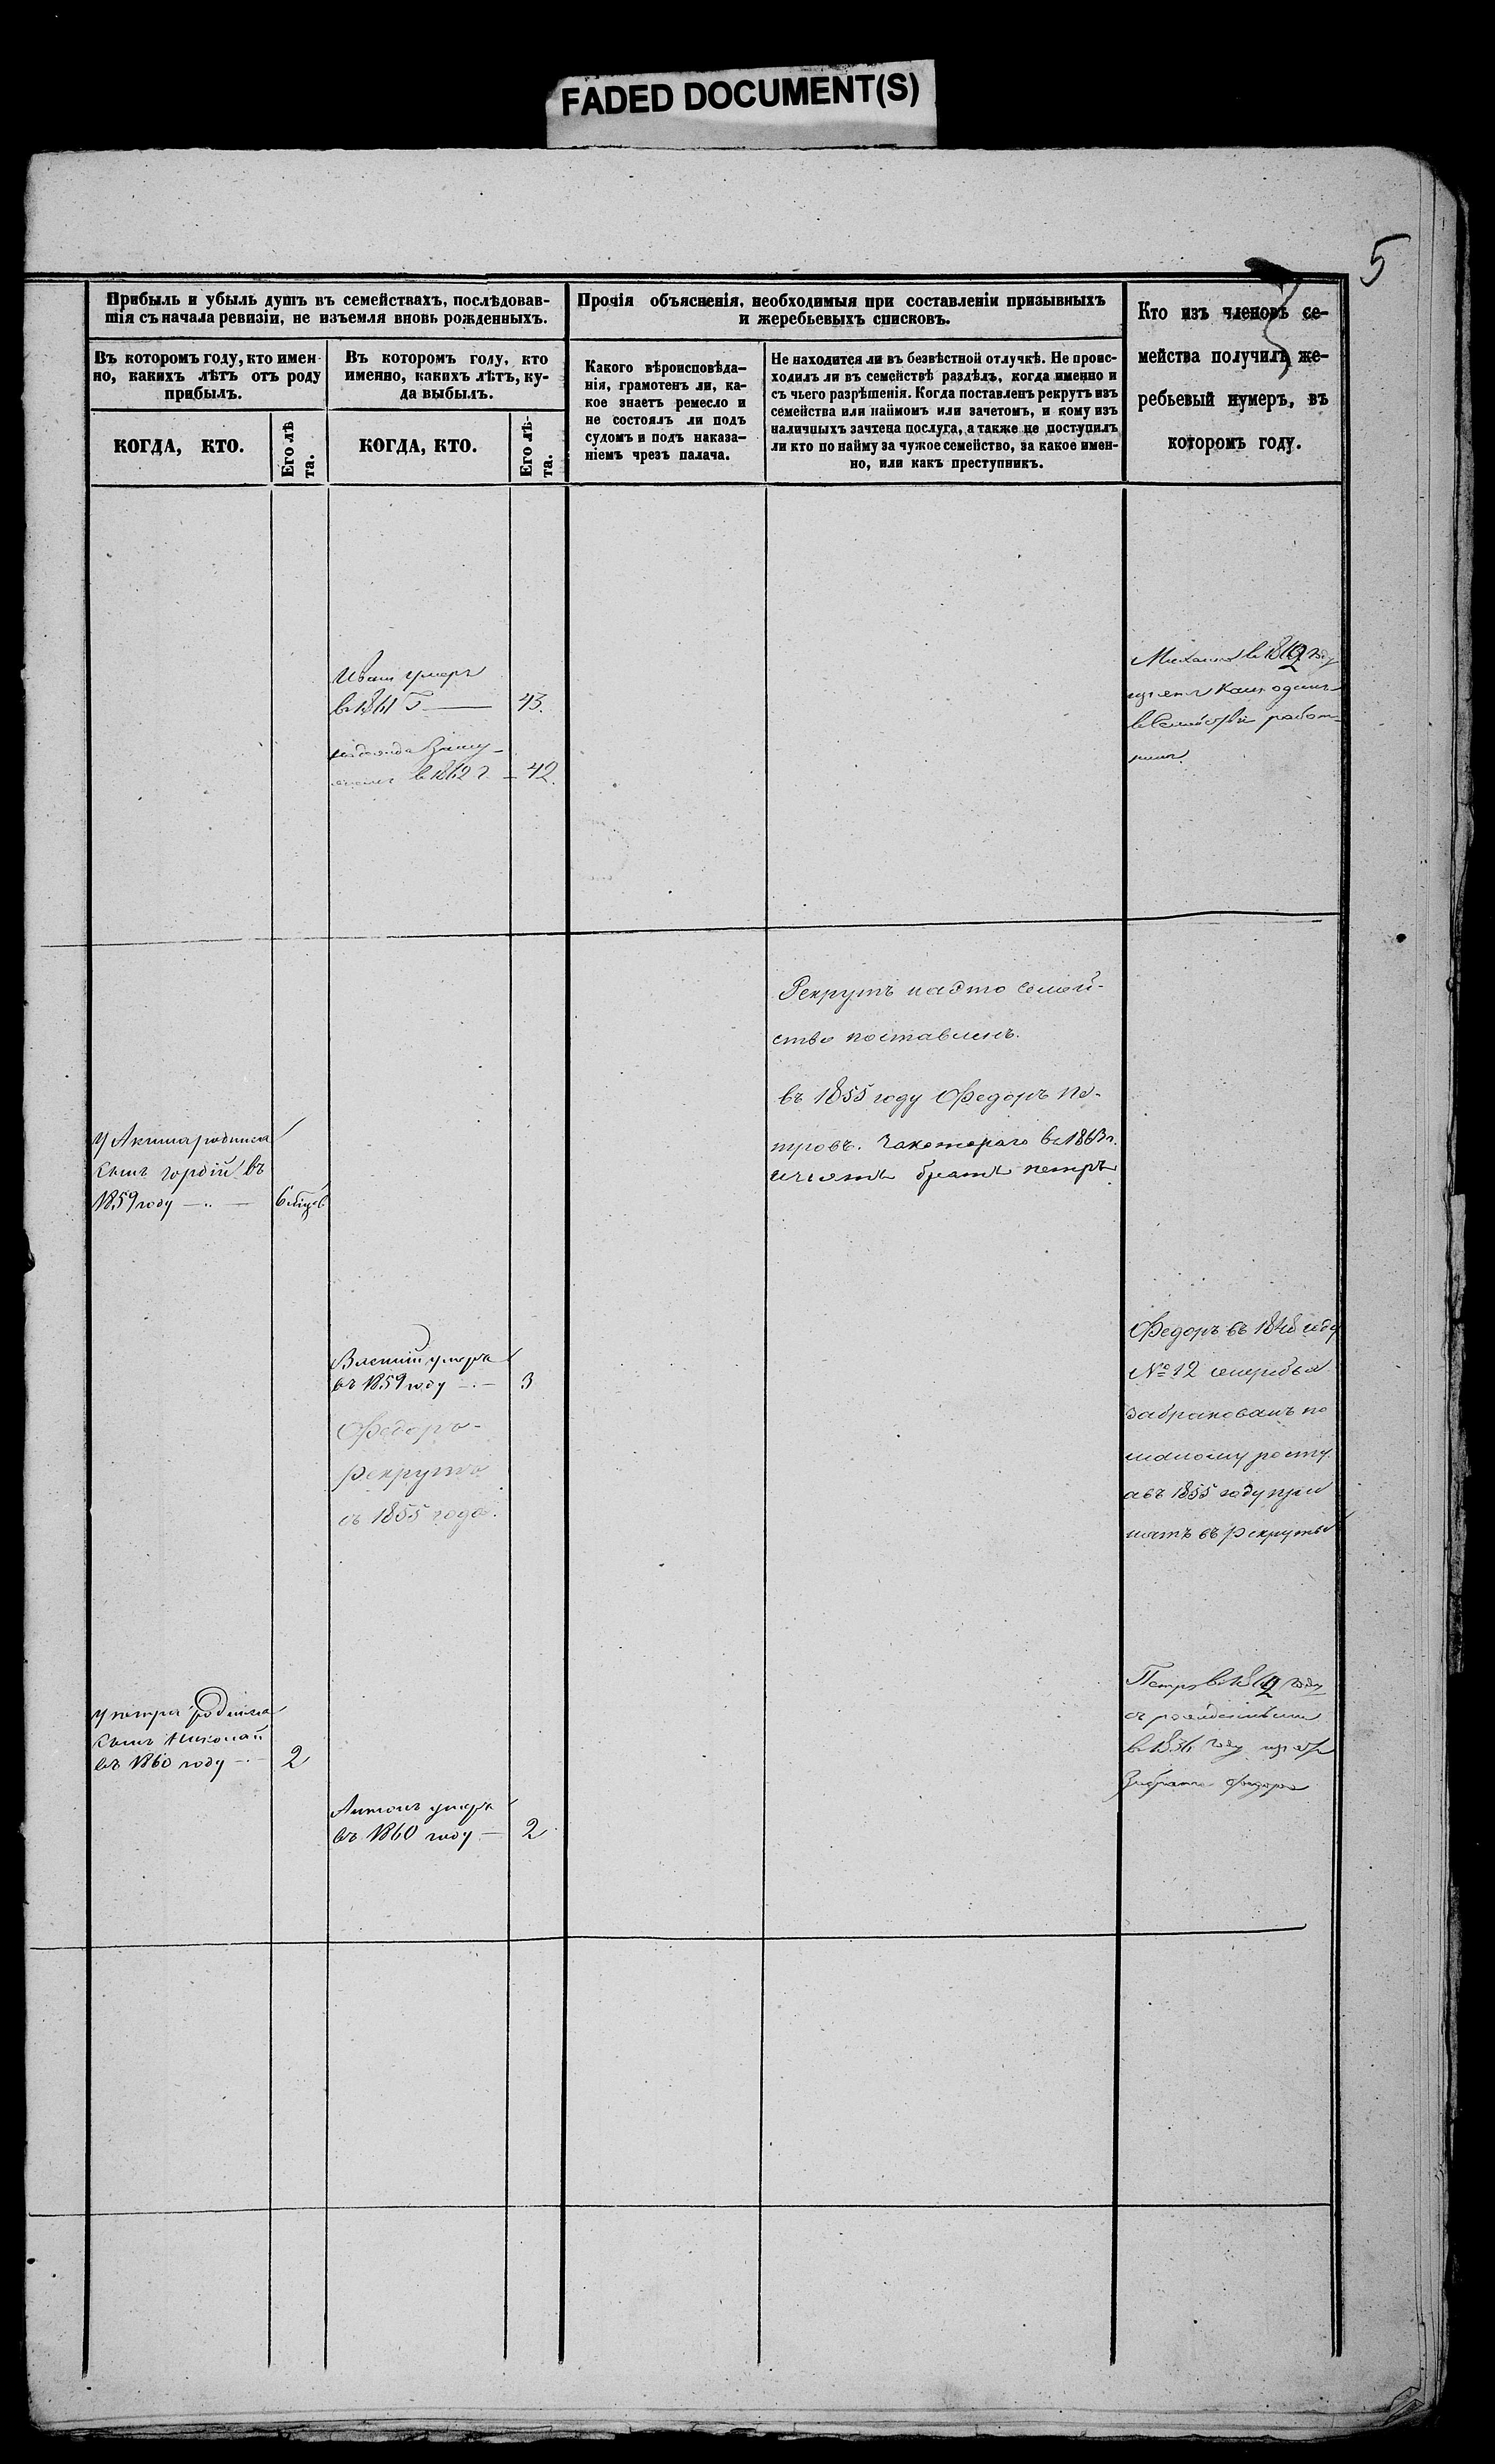 FADED DOCUMENT(S)
5
Прибыль и убыль душъ въ семействахъ, послѣдовав-
шія съ начала ревизіи, не изъемля вновь рожденныхъ.
Прочія объясненія, необходимыя при составленіи призывныхъ
и жеребьевыхъ списковъ.
Кто изъ членовъ се-
мейства получилъ же-
ребьевый нумеръ, въ
которомъ году.
Въ которомъ году, кто имен-
но, какихъ лѣтъ отъ роду
прибылъ.
Въ которомъ году, кто
именно, какихъ лѣтъ, ку-
да выбылъ.
Какого вѣроисповѣда-
нія, грамотенъ ли, ка-
кое знаетъ ремесло и
не состоялъ ли подъ
судомъ и подъ наказа-
ніемъ чрезъ палача.
Не находится ли въ безвѣстной отлучкѣ. Не проис-
ходилъ ли въ семействѣ раздѣлъ, когда именно и
съ чьего разрѣшенія. Когда поставленъ рекрутъ изъ
семейства или наймомъ или зачетомъ, и кому изъ
наличныхъ зачтена послуга, а также не поступилъ
ли кто по найму за чужое семейство, за какое имен-
но, или какъ преступникъ.
КОГДА, КТО.
Его лѣ
та.
КОГДА, КТО.
Его лѣ-
та.
Иванъ умеръ
в 1861 Г — 43.
в 1862 г. — 42.
Михаилъ в 1862 году
изъятъ какъ одинъ
в семействѣ работ-
никъ.
Рекрутъ на это семей-
ство поставленъ.
въ 1855 году Федоръ Пе-
тровъ. Закотораго въ 1863 г.
братъ петръ
У Акима родился
сынъ гордій въ
1859 году — 6 мѣсц
умеръ
въ 1859 году — 3
Федоръ-
рекрутъ
съ 1855 года.
Федоръ въ 1848 году
№ 12 жеребья
забракованъ по
малому росту.
а въ 1855 году при
нятъ въ рекруты
У петра родился
сынъ Николай
въ 1860 году — 2
Антонъ умеръ
въ 1860 году — 2
Петръ в 1862 году
в 1856 году
за брата Федора